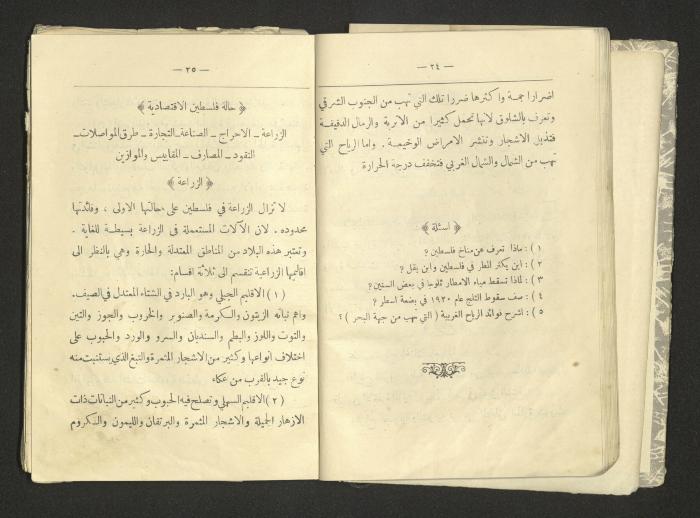 — ٢٤ —
اضرارا جمة واكثرها ضررا تلك التي تهب من الجنوب الشرقي
وتعرف بالشلوق لانها تحمل كثيرا من الاتربة والرمال الدقيقة
فتذبل الاشجار وتنشر الامراض الوخيمة . واما الرياح التي
تهب من الشمال والشمال الغربي فتخفف درجة الحرارة
﴿ اسئلة ﴾
١ ) : ماذا تعرف عن مناخ فلسطين ؟
٢ ) : اين يكثر المطر في فلسطين واين يقل ؟
٣ ) : لماذا تسقط مياه الامطار ثلوجا في بعض السنين ؟
٤ ) : صف سقوط الثلج عام ١٩٢٠ في بضعة اسطر ؟
٥ ) : اشرح فوائد الرياح الغربية ( التي تهب من جهة البحر ) ؟
— ٢٥ —
﴿ حالة فلسطين الاقتصادية ﴾
الزراعة ـ الاحراج ـ الصناعة ـ التجارة ـ طرق المواصلات ـ
النقود ـ المصارف ـ المقاييس والموازين
﴿ الزراعة ﴾
لا تزال الزراعة في فلسطين على حالتها الاولى ، وفائدتها
محدوده . لان الآلات المستعملة في الزراعة بسيطة للغاية .
وتعتبر هذه البلاد من المناطق المعتدلة والحارة وهي بالنظر الى
اقاليمها الزراعية تنقسم الى ثلاثة اقسام:
( ١ ) الاقليم الجبلي وهو البارد في الشتاء المعتدل في الصيف.
واهم نباته الزيتون والكرمة والصنوبر والخروب والجوز والتين
والتوت واللوز والبطم والسنديان والسرو والورد والحبوب على
اختلاف انواعها وكثير من الاشجار المثمرة والتبغ الذي يستنبت منه
نوع جيد بالقرب من عكاء
( ٢ ) الاقليم السهلي وتصلح فيه الحبوب وكثير من النباتات ذات
الازهار الجميلة والاشجار المثمرة والبرتقان والليمون والكروم